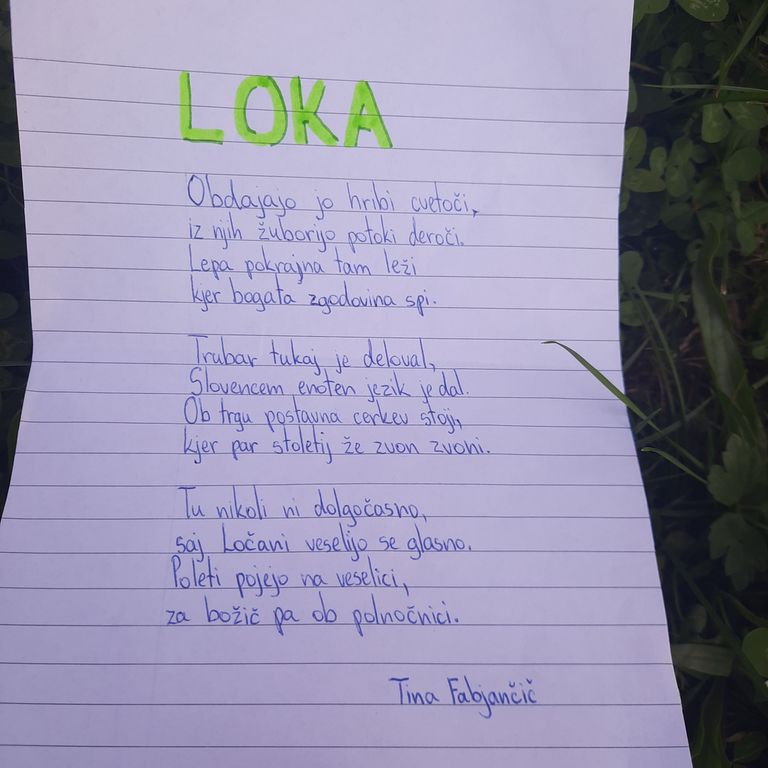 LOKA
Obdajajo jo hribi cvetoči,
iz njih žuborijo potoki deroči.
Lepa pokrajna tam leži
kjer bogata zgodovina spi.
Trubar tukaj je deloval,
Slovencem enoten jezik je dal.
Ob trgu postavna cerkev stoji,
kjer par stoletij že zvon zvoni.
Tu nikoli ni dolgočasno,
saj Ločani veselijo se glasno.
Poleti pojejo na veselici,
za božič pa ob polnočnici.
Tina Fabjančič